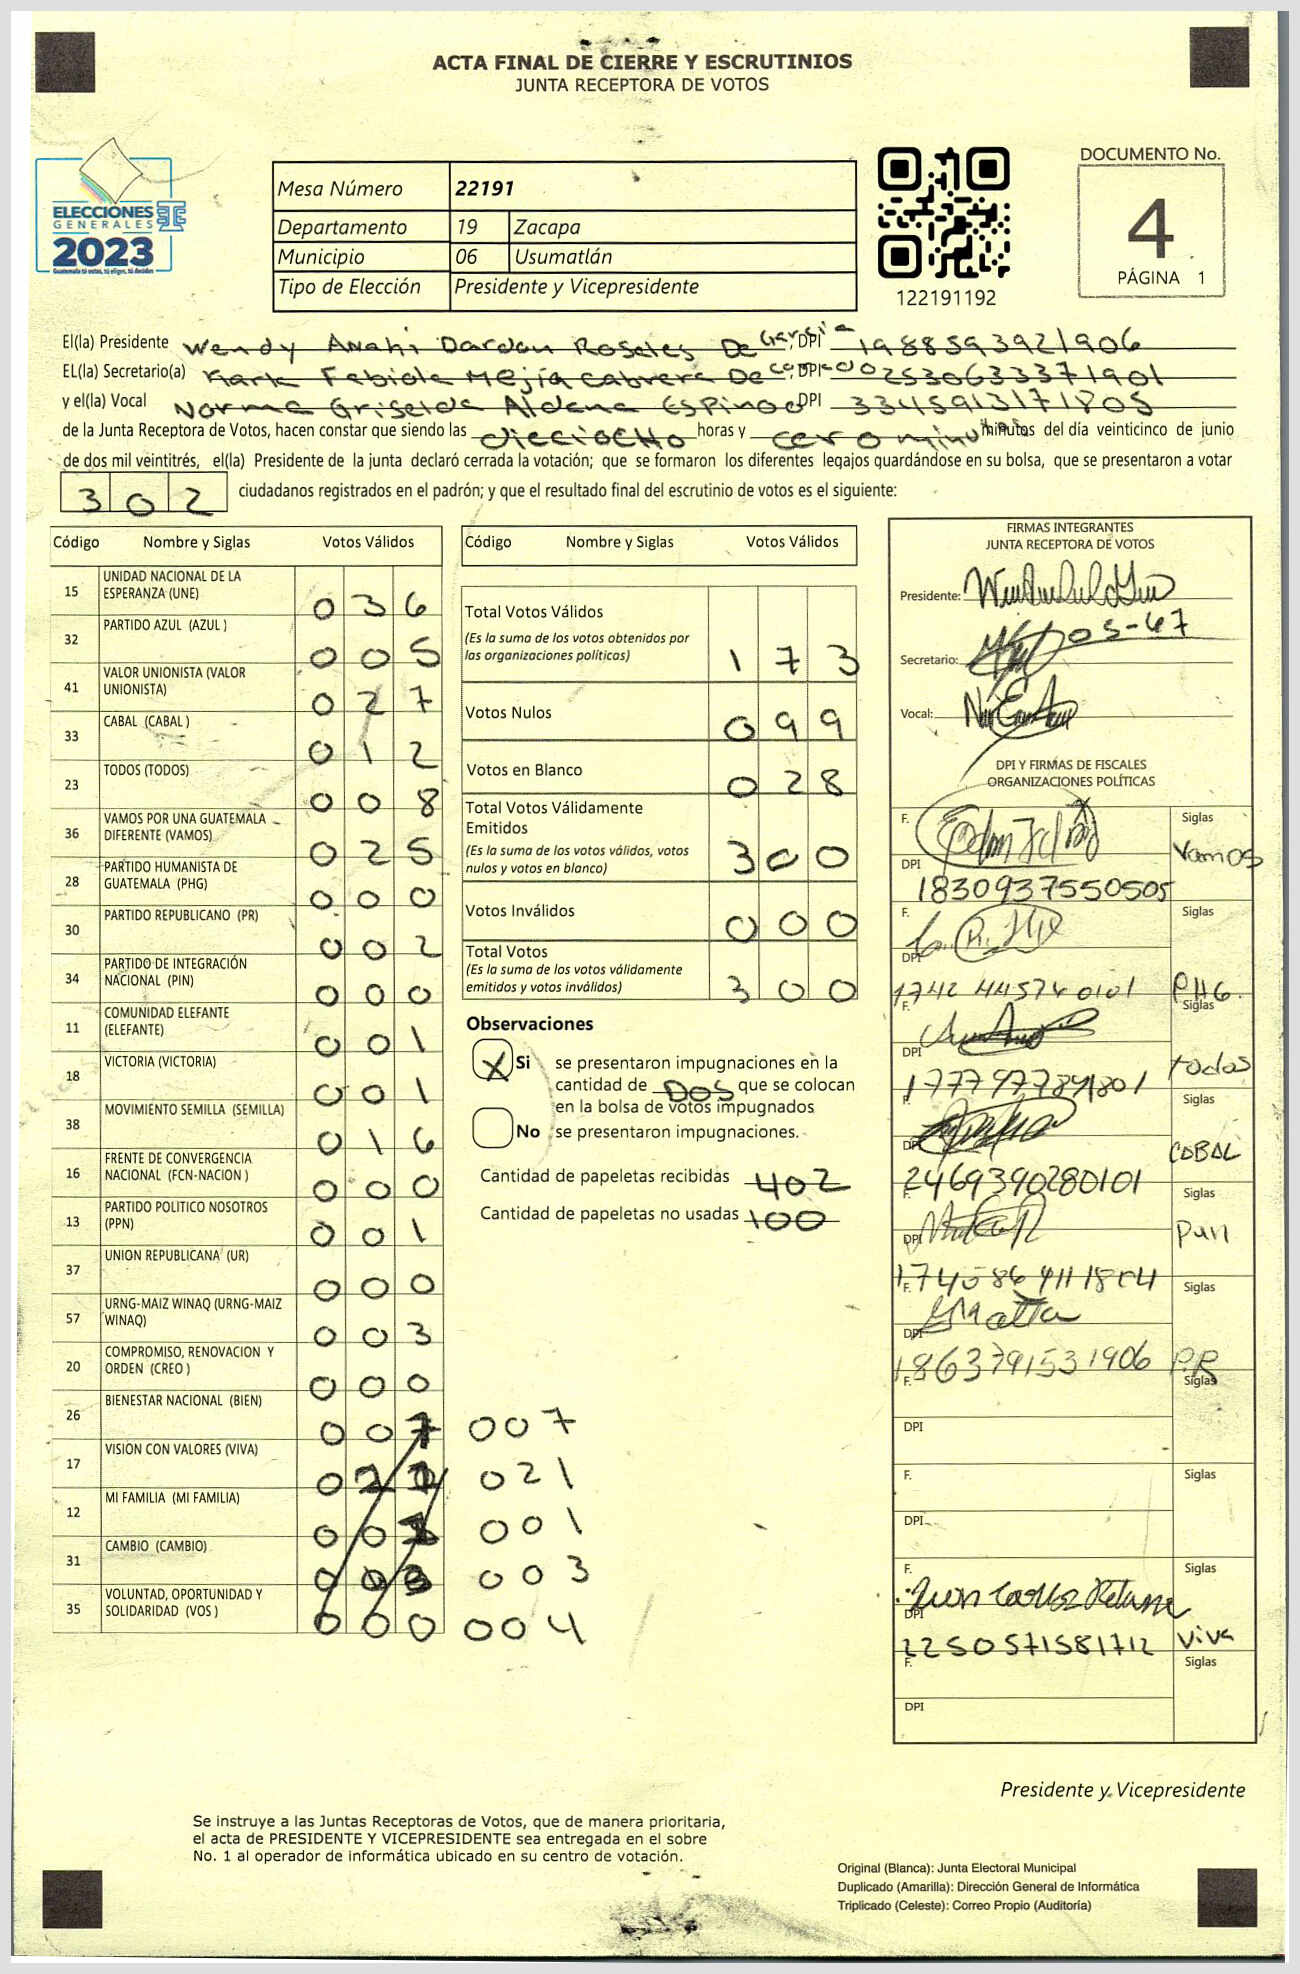 ACTA FINAL DE CIERRE Y ESCRUTINIOS
JUNTA RECEPTORA DE VOTOS
ELECCIONES
GENERALES
2023
Guatemala tú votas, tú eliges, tú decides
Mesa Número 22191
Departamento 19 Zacapa
Municipio 06 Usumatlán
Tipo de Elección Presidente y Vicepresidente
122191192
DOCUMENTO No.
4
PÁGINA 1
El(la) Presidente Wendy Anahi Dardon Rosales De Garcia, DPI 1988593921906
EL(la) Secretario(a) Karla Fabiola Mejía Cabrera De , DPI 0253063371901
y el(la) Vocal Norma Griselda Aldana Espino DPI 3345913171805
de la Junta Receptora de Votos, hacen constar que siendo las dieciocho horas y cero minutos minutos del día veinticinco de junio
de dos mil veintitrés, el(la) Presidente de la junta declaró cerrada la votación; que se formaron los diferentes legajos guardándose en su bolsa, que se presentaron a votar
302 ciudadanos registrados en el padrón; y que el resultado final del escrutinio de votos es el siguiente:
Código Nombre y Siglas Votos Válidos
15 UNIDAD NACIONAL DE LA ESPERANZA (UNE) 036
32 PARTIDO AZUL (AZUL ) 005
41 VALOR UNIONISTA (VALOR UNIONISTA) 027
33 CABAL (CABAL ) 012
23 TODOS (TODOS) 008
36 VAMOS POR UNA GUATEMALA DIFERENTE (VAMOS) 025
28 PARTIDO HUMANISTA DE GUATEMALA (PHG) 000
30 PARTIDO REPUBLICANO (PR) 002
34 PARTIDO DE INTEGRACIÓN NACIONAL (PIN) 000
11 COMUNIDAD ELEFANTE (ELEFANTE) 001
18 VICTORIA (VICTORIA) 001
38 MOVIMIENTO SEMILLA (SEMILLA) 016
16 FRENTE DE CONVERGENCIA NACIONAL (FCN-NACION ) 000
13 PARTIDO POLITICO NOSOTROS (PPN) 001
37 UNION REPUBLICANA (UR) 000
57 URNG-MAIZ WINAQ (URNG-MAIZ WINAQ) 003
20 COMPROMISO, RENOVACION Y ORDEN (CREO ) 000
26 BIENESTAR NACIONAL (BIEN) 007 007
17 VISION CON VALORES (VIVA) 021
12 MI FAMILIA (MI FAMILIA) 001
31 CAMBIO (CAMBIO) 003
35 VOLUNTAD, OPORTUNIDAD Y SOLIDARIDAD (VOS ) 000 004
Código Nombre y Siglas Votos Válidos
Total Votos Válidos
(Es la suma de los votos obtenidos por
las organizaciones politicas) 173
Votos Nulos 099
Votos en Blanco 028
Total Votos Válidamente
Emitidos
(Es la suma de los votos válidos, votos
nulos y votos en blanco) 300
Votos Inválidos 000
Total Votos
(Es la suma de los votos válidamente
emitidos y votos inválidos) 300
Observaciones
X Si se presentaron impugnaciones en la
cantidad de DOS que se colocan
en la bolsa de votos impugnados
No se presentaron impugnaciones.
Cantidad de papeletas recibidas 402
Cantidad de papeletas no usadas 100
FIRMAS INTEGRANTES
JUNTA RECEPTORA DE VOTOS
Presidente:
05-67
Secretario:
Vocal:
DPI Y FIRMAS DE FISCALES
ORGANIZACIONES POLÍTICAS
F. Siglas
Vamos
DPI
1830937550505
F. Siglas
DPI
1742 445740101 PHG.
F. Siglas
DPI
todos
F. Siglas
DPI
2469390280101 CABAL
F. Siglas
DPI
F. Siglas
DPI
1863791531906 P.R
F. Siglas
DPI
F. Siglas
DPI
F. Siglas
Juan Carlos Retana
DPI
2250571581712 Viva
F. Siglas
DPI
Presidente y Vicepresidente
Se instruye a las Juntas Receptoras de Votos, que de manera prioritaria,
el acta de PRESIDENTE Y VICEPRESIDENTE sea entregada en el sobre
No. 1 al operador de informática ubicado en su centro de votación.
Original (Blanca): Junta Electoral Municipal
Duplicado (Amarilla): Dirección General de Informática
Triplicado (Celeste): Correo Propio (Auditoría)